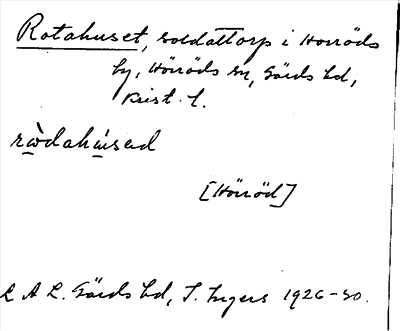 Rotahuset, soldattorp i Hörröds
by, Hörröds sn, Gärds hd,
Krist. l.
rὼdahúsad
[Hörröd]
L A L. Gärds hd, I. Ingers 1926-30.